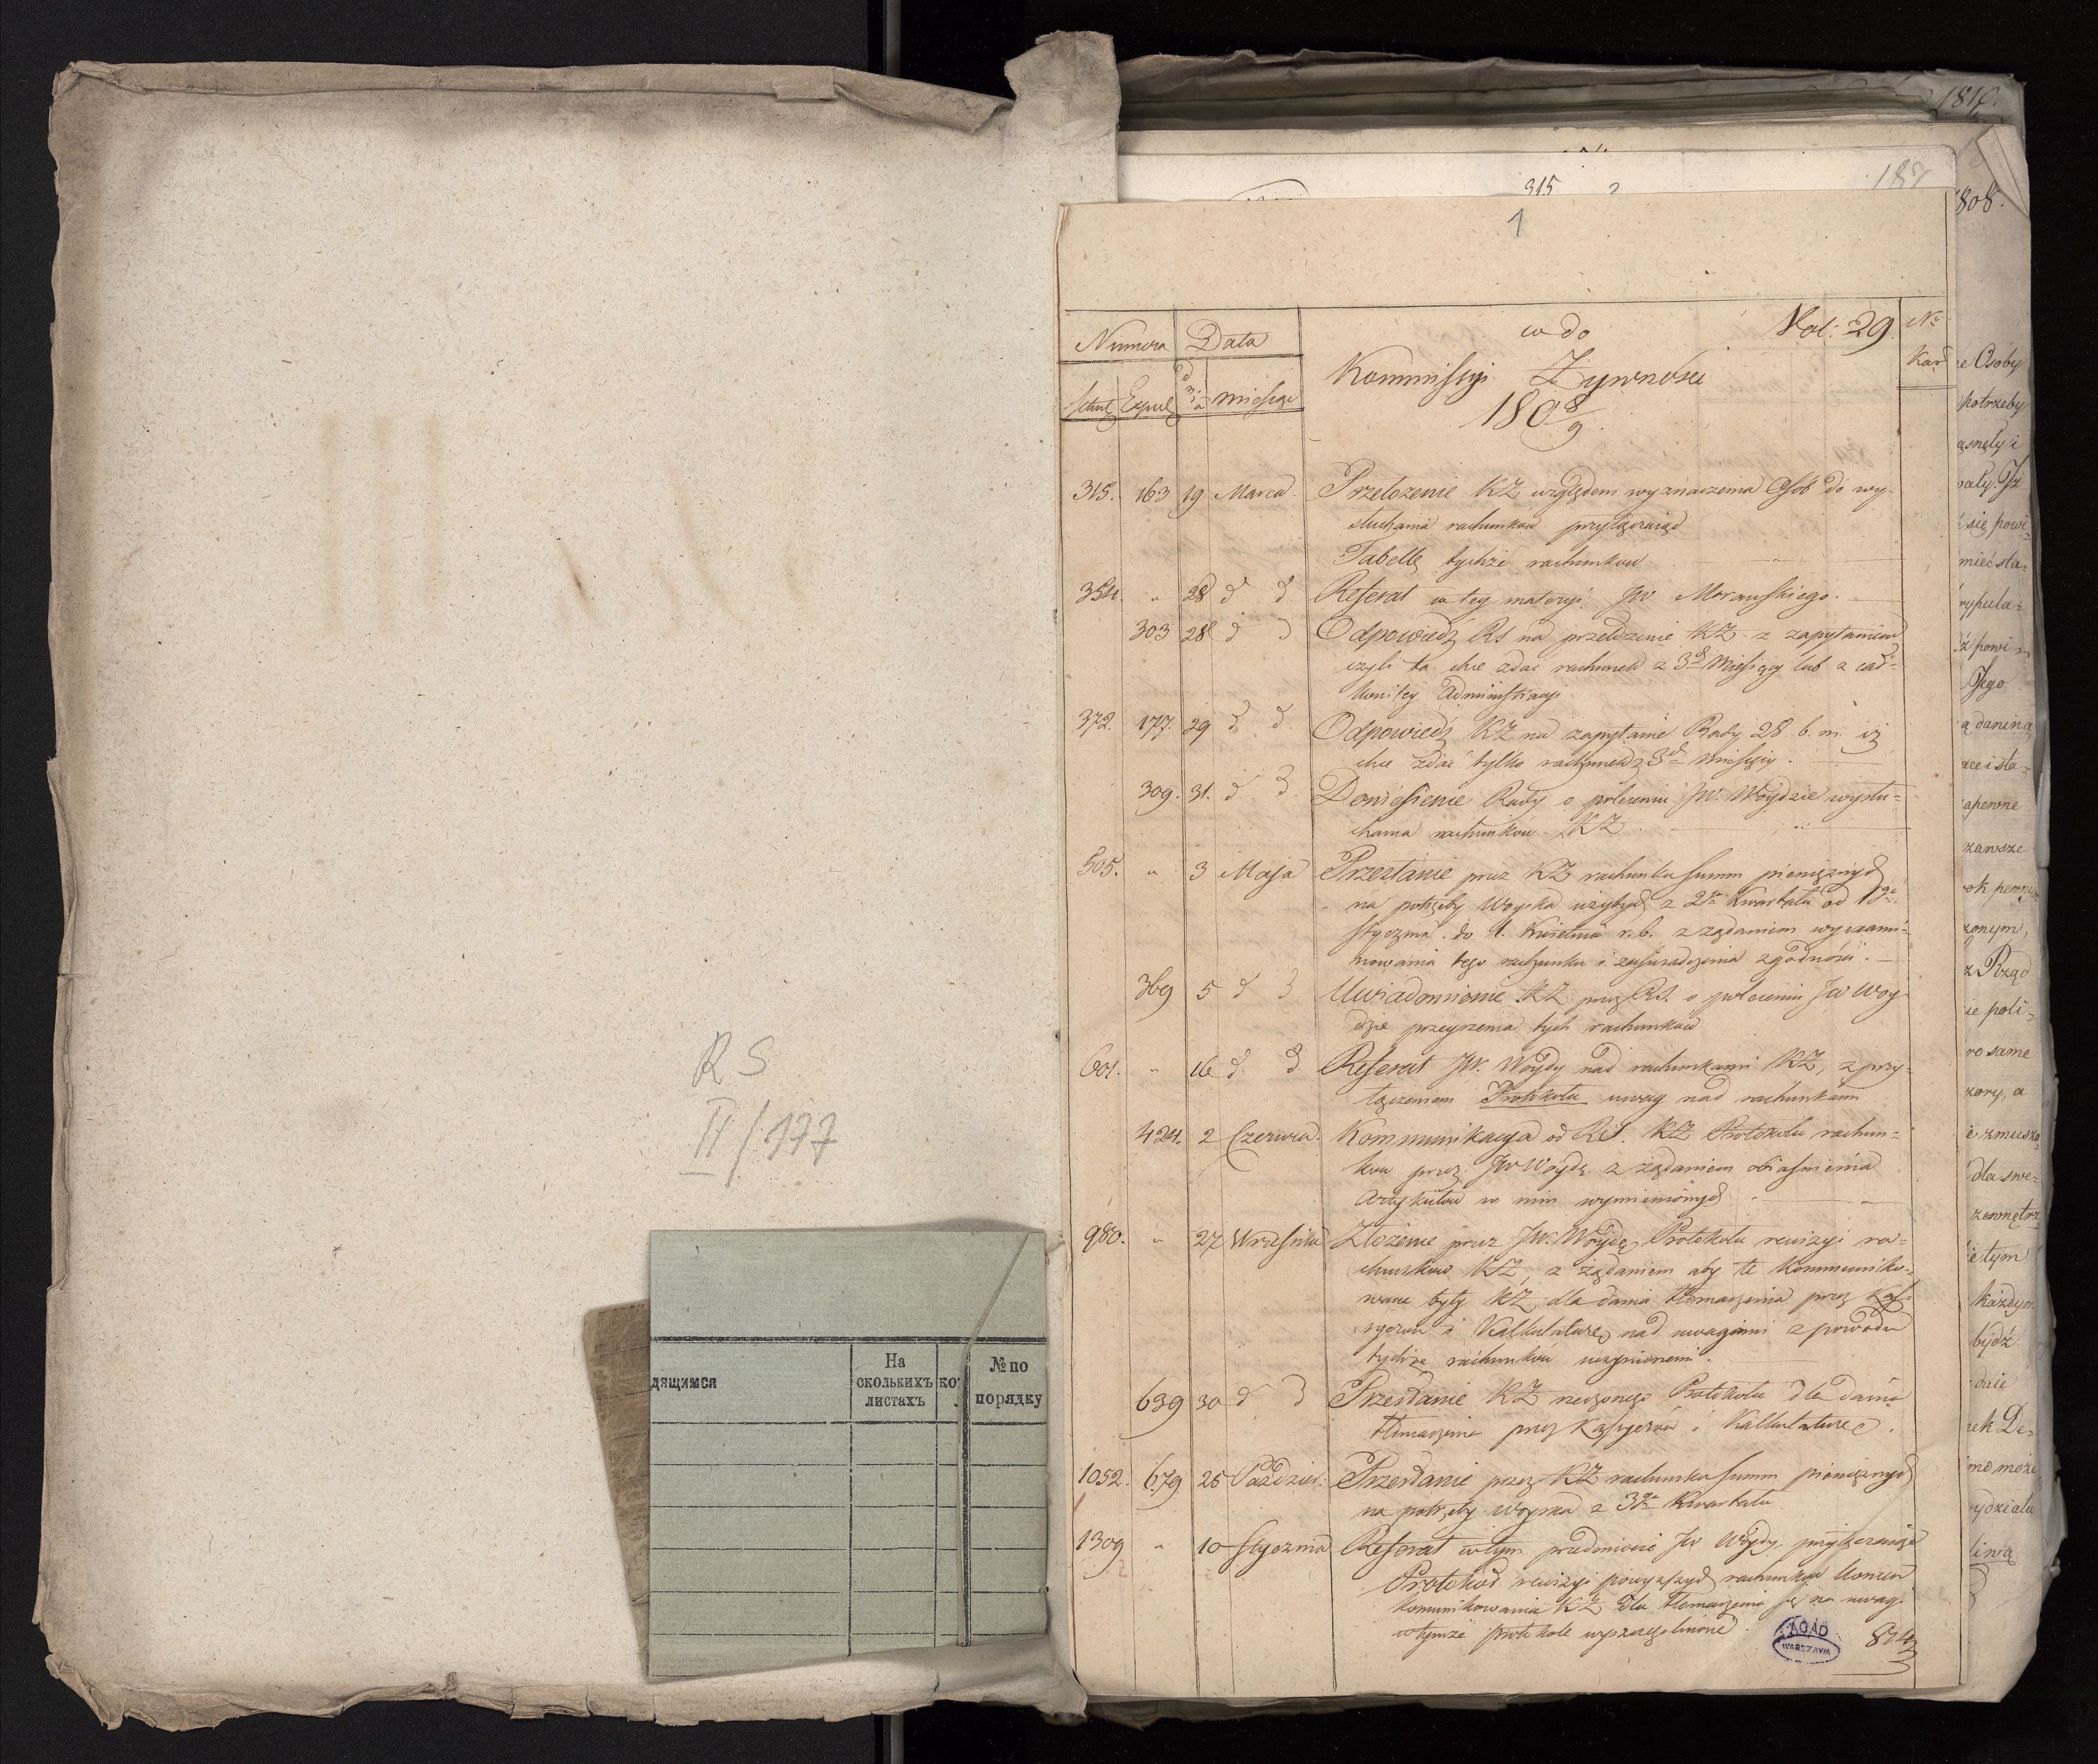 R S
II/177
дящимся
На
сколькихъ
листахъ
№ по
порядку
1816.
1808.
187
315
1
Numera
Data
w do
Vol: 29.
Nr
Kart
Expud
dnia
miesiąc
Kommissyi Żywności
1808/9.
315. 163 19 Marca. Przełożenie KZ względem wyznaczenia Osób do wy-
słuchania rachunków przyłączaiąc
Tabellę tychże rachunków
354. " 28 d d. Referat w tey materyi JW Morawskiego.
303 28 d d Odpowiedź RS na przełożenie KZ z zapytaniem
czyli ta chce zdać rachunek z 3ch Miesięcy lub z cał-
kowitey Administracyi
372. 177. 29 d d. Odpowiedź KZ na zapytanie Rady 28 b. m. iż
chce zdać tylko rachunek z 3ch Miesięcy.
309. 31. d d. Doniesienie Rady o poleceniu JW. Woydzie wysłu-
chania rachunków KZ
505. " 3 Maja Przesłanie przez KZ rachunku summ pieniężnych
na potrzeby Woyska użytych z 2go Kwartału od 1go
Stycznia do 1. Kwietnia r. b. z żądaniem wyexami-
nowania tego rachunku i zaświadczenia zgodności.
369 5 d d Uwiadomienie KZ przez RS. o poleceniu JW Woy-
dzie przeyrzenia tych rachunków
601. " 16 d. d Referat JW. Woydy nad rachunkami KZ, z przy-
łączeniem Protokołu uwag nad rachunkami
424. 2 Czerwca. Kommunikacya od RS. KZ Protokołu rachun-
ków przez JW Woydę z żądaniem obiaśnienia
Artykułów w nim wymienionych
980. " 27 Września Złożenie przez JW. Woydę Protokołu rewizyi ra-
chunków KZ, z żądaniem aby te kommuniko-
wane były KZ dla dania tłomaczenia przez Kas-
syerów i Kalkulaturę nad uwagami z powodu
tychże rachunków uczynionemi.
639 30 d d Przesłanie KZ rzeczonego Protokołu dla dania
tłomaczenia przez Kassyerów i Kalkulaturę.
1052. 679 25 Paździer: Przesłanie przez KZ rachunku summ pieniężnych
na potrzeby woyska z 3go Kwartału
1309 " 10 Stycznia Referat w tym przedmiocie JW Woydy przyłączaiąc
Protokoł rewizyi powyższych rachunków końcem
komunikowania KZ dla tłomaczenia się na uwagi
w tymże protokole wyszczególnione.
AGAD
WARSZAWA
874
Osoby
potrzeby
się powi-
mieć sta-
Jego
zawsze
z Rząd
ie poli-
ro same
zory, a
dla swe-
zewnętrz
każdym
bydź